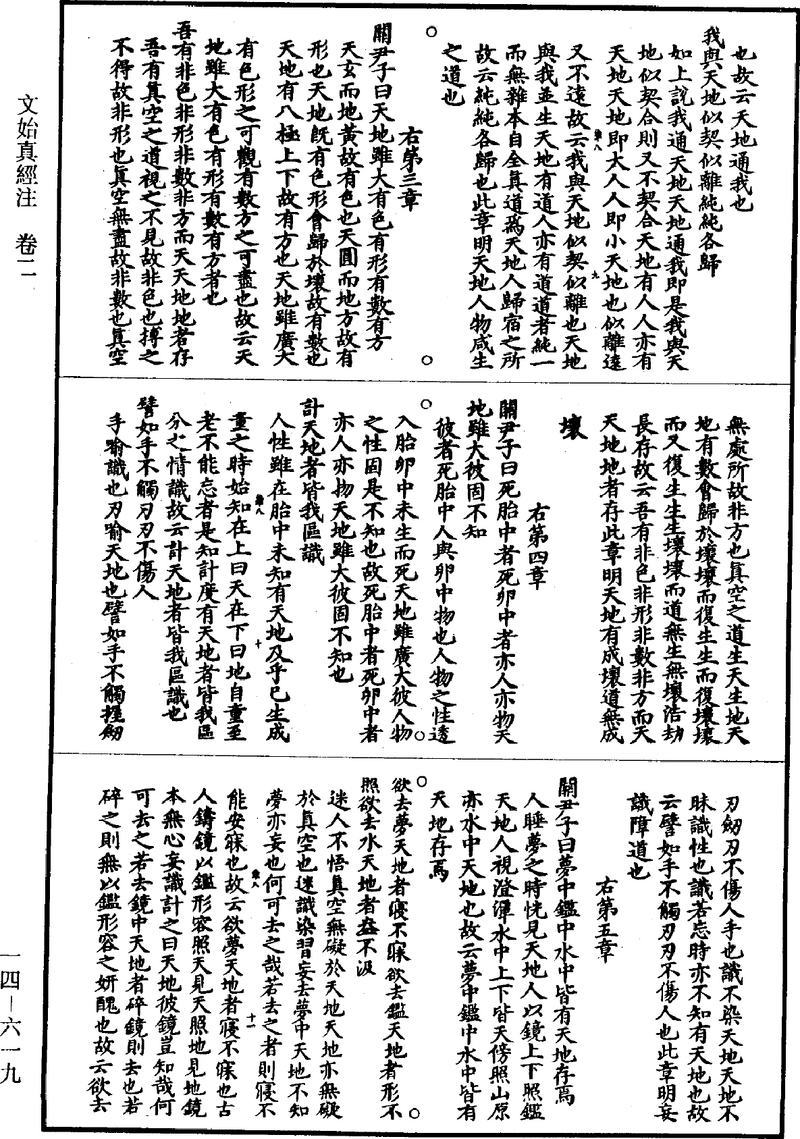 文始真經注　卷二
也故云天地通我也
我與天地似契似離純純各歸
如上說我通天地天地通我即是我與天
地似契合則又不契合天地有人人亦有
天地天地即大人人即小天地也似離遠
又不遠故云我與天地似契似離也天地
與我並生天地有道人亦有道道者純一
而無雜本自全真道爲天地人歸宿之所
故云純純各歸也此章明天地人物咸生
之道也
右第三章
關尹子曰天地雖大有色有形有數有方
天玄而地黃故有色也天圓而地方故有
形也天地旣有色形會歸於壞故有數也
天地有八極上下故有方也天地雖廣大
有色形之可觀有數方之可盡也故云天
地雖大有色有形有數有方者也
吾有非色非形非數非方而天天地地者存
吾有真空之道視之不見故非色也搏之
不得故非形也真空無盡故非數也真空
無處所故非方也真空之道生天生地天
地有數會歸於壞壞而復生生而復壞壞
而又復生生生壞壞而道無生無壞浩劫
長存故云吾有非色非形非數非方而天
天地地者存此章明天地有成壞道無成
壞
右第四章
關尹子曰死胎中者死卵中者亦人亦物天
地雖大彼固不知
彼者死胎中人與卵中物也人物之性透
入胎卵中未生而死天地雖廣大彼人物
之性固是不知也故死胎中者死卵中者
亦人亦物天地雖大彼固不知也
計天地者皆我區識
人性雖在胎中未知有天地及乎已生成
童之時始知在上曰天在下曰地自童至
老不能忘者是知計度有天地者皆我區
分之情識故云計天地者皆我區識也
譬如手不觸刃刃不傷人
手喻識也刃喻天地也譬如手不觸握劒
刃劒刃不傷人手也識不染天地天地不
昧識性也識若忘時亦不知有天地也故
云譬如手不觸刃刃不傷人也此章明妄
識障道也
右第五章
關尹子曰夢中鑑中水中皆有天地存焉
人睡夢之時恍見天地人以鏡上下照鑑
天地人視澄潭水中上下皆天傍照山原
亦水中天地也故云夢中鑑中水中皆有
天地存焉
欲去夢天地者寢不寐欲去鑑天地者形不
照欲去水天地者盎不汲
迷人不悟真空無礙於天地天地亦無礙
於真空也迷識染習妄去夢中天地不知
夢亦妄也何可去之哉若去之者則寢不
能安寐也故云欲夢天地者寢不寐也古
人鑄鏡以鑑形容照天見天照地見地鏡
本無心妄識計之曰天地彼鏡豈知哉何
可去之若去鏡中天地者碎鏡則去也若
碎之則無以鑑形容之妍醜也故云欲去
一四—六一九